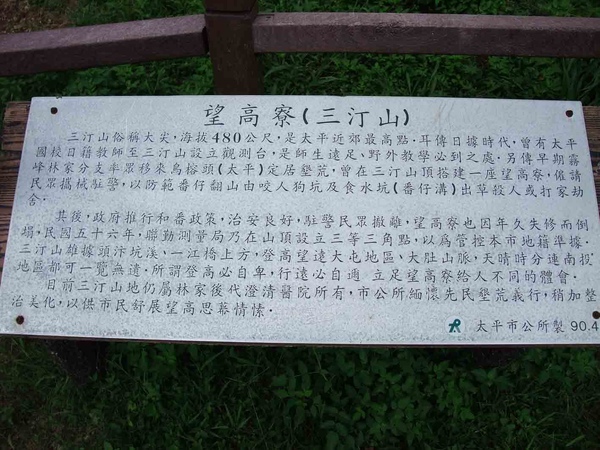 望高寮(三汀山)
三汀山俗稱大尖，海拔480公尺，是太平近郊最高點．耳傳日據時代，曾有太平
國校日籍教師至三汀山設立觀測台，是師生遠足、野外教學必到之處．另傳早期霧
峰林家分支率眾移來鳥榕頭(太平)定居墾荒，曾在三汀山頂搭建一座望高寮，僱請
民眾攜械駐警，以防範番仔翻山由咬人狗坑及食水坑(番仔溝)出草殺人或打家劫
舍．
其後，政府推行和番政策，治安良好，駐警民眾撤離，望高寮也因年久失修而倒
塌，民國五十六年，聯勤測量局乃在山頂設立三等三角點，以為管控本市地籍準據．
三汀山雄據頭汴坑溪、一江橋上方，登高望遠大屯地區、大肚山脈，天晴時分連南投
地區都可一覽無遺．所謂登高必自卑，行遠必自邇 立足望高寮給人不同的體會．
目前三汀山地仍屬林家後代澄清醫院所有，市公所緬懷先民墾荒義行，稍加整
治美化，以供市民舒展望高思幕情愫．
太平市公所製 90.4